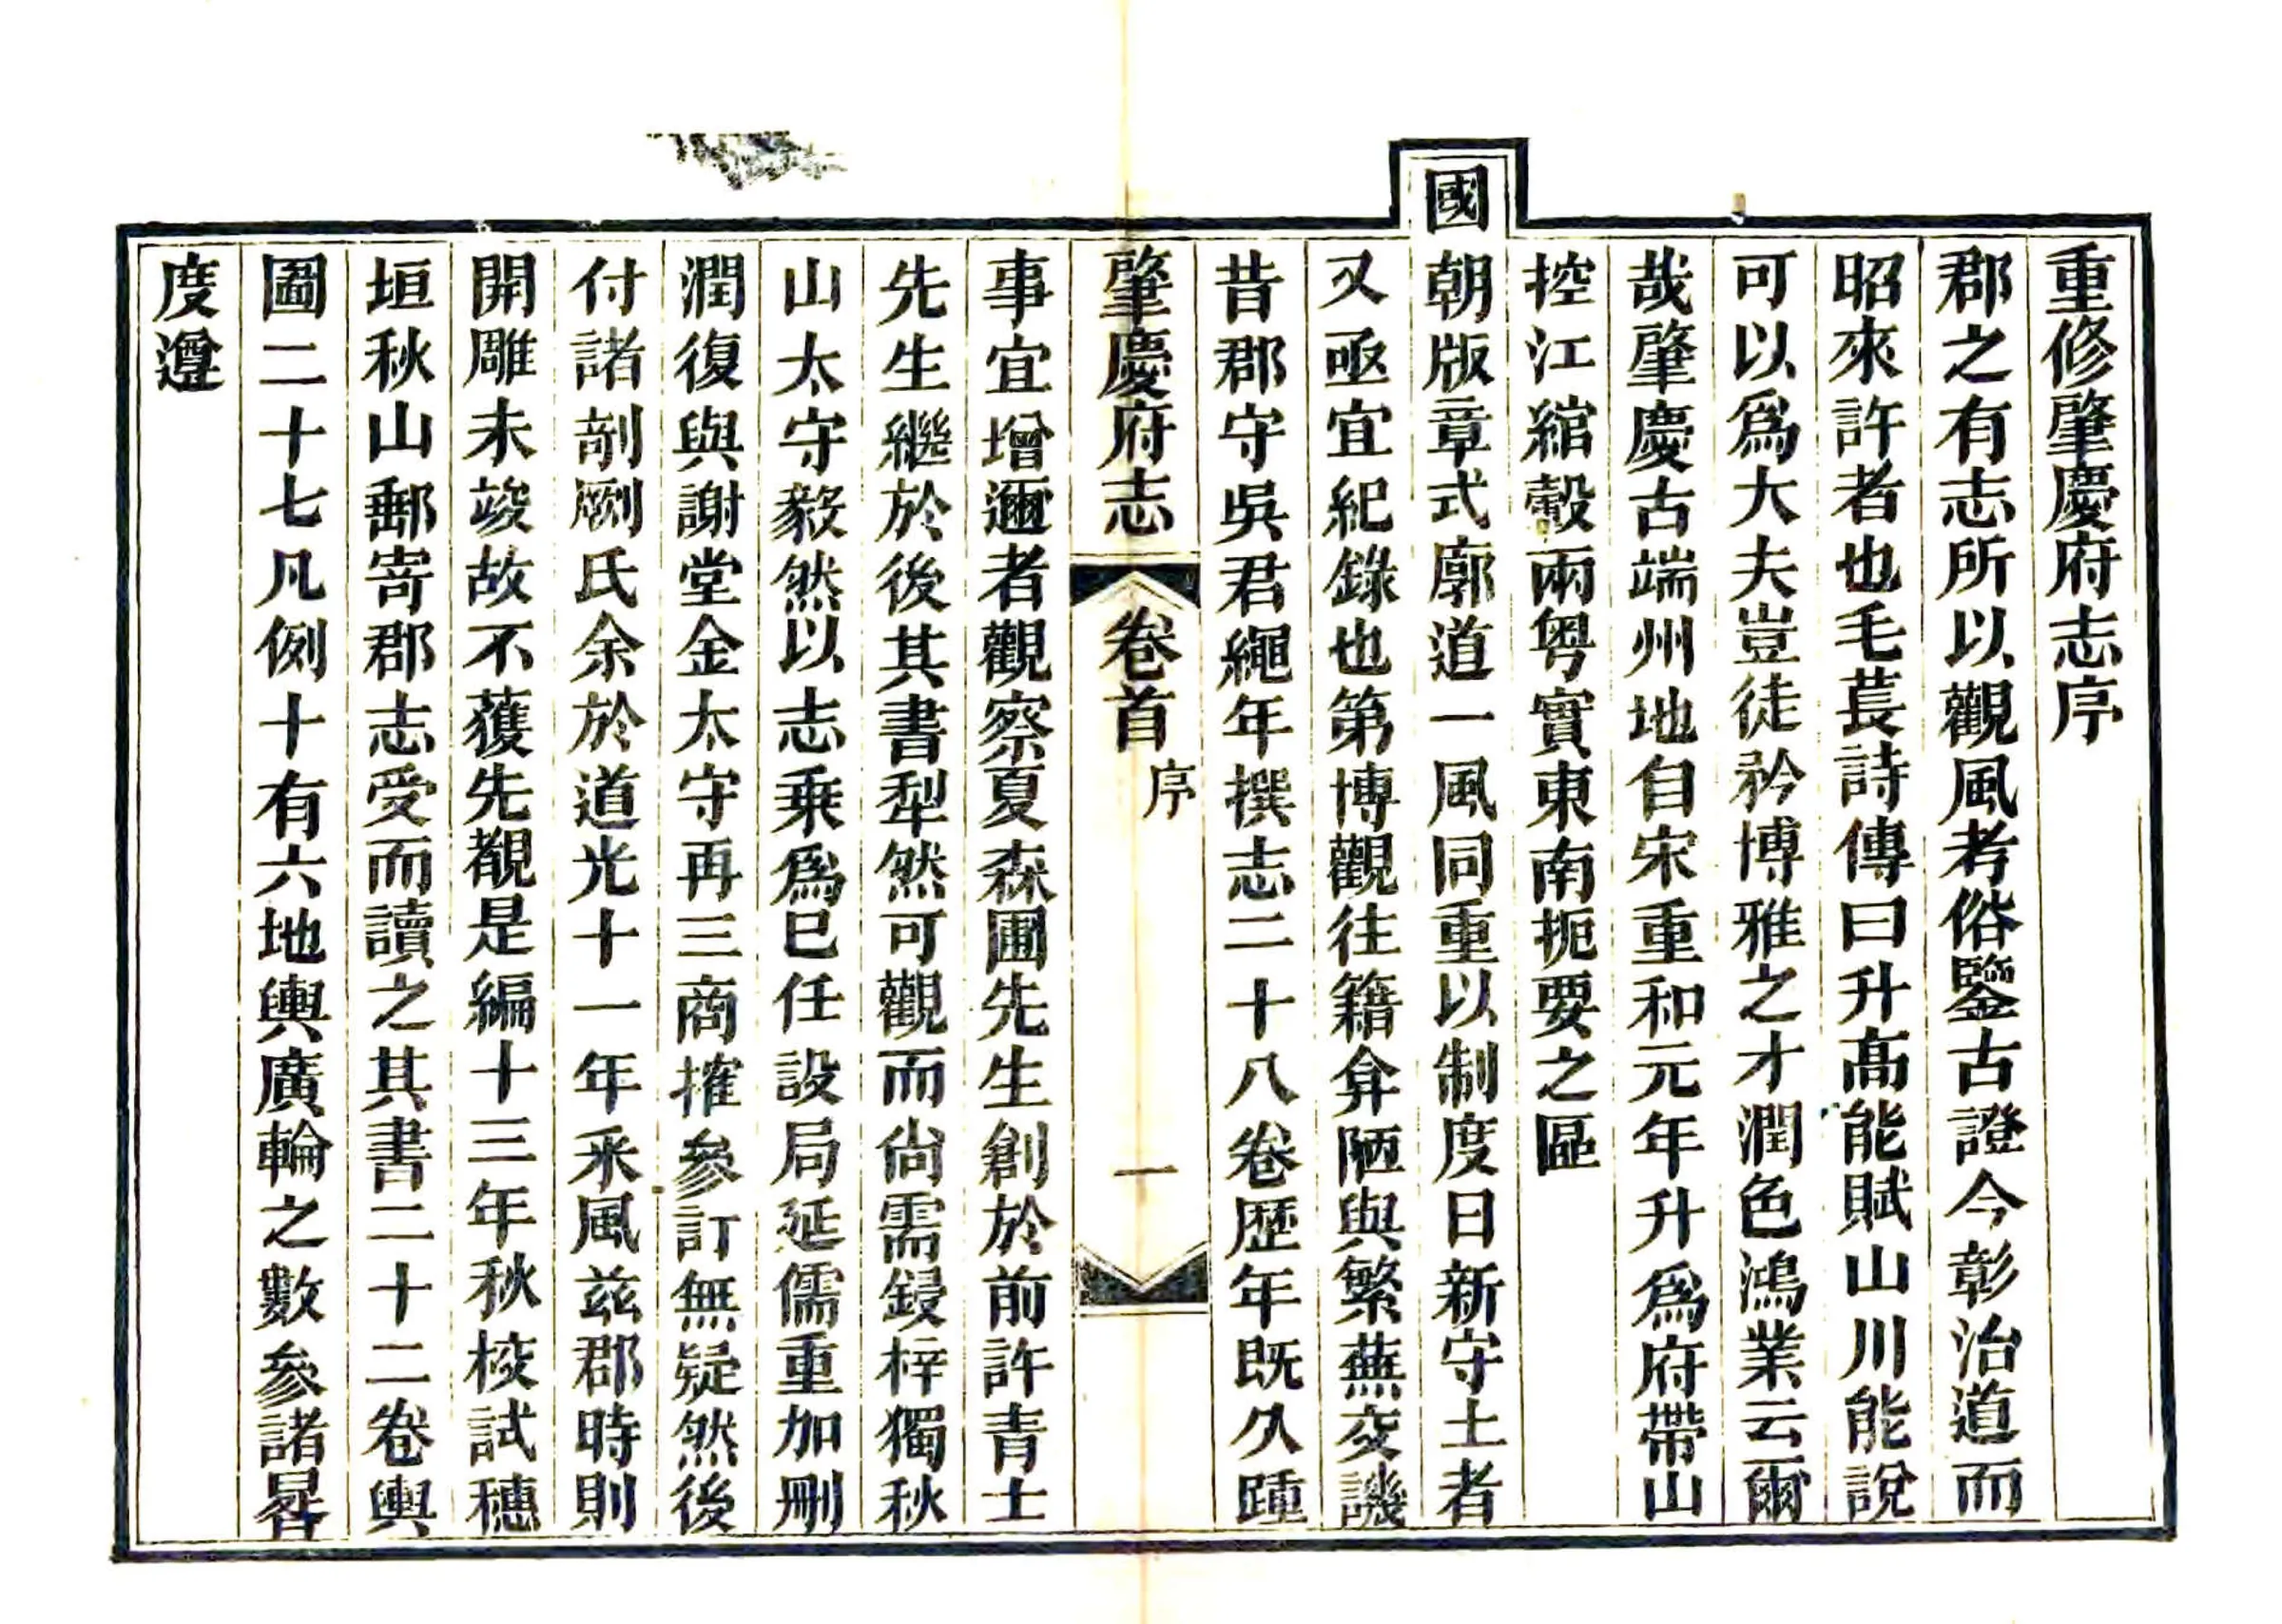 重修肇慶府志序
郡之有志所以觀風考俗鑒古證今彰治道而
昭來許者也毛萇詩傳曰升高能賦山川能說
可以爲大夫豈徒矜博雅之才潤色鴻業云爾
哉肇慶古端州地自宋重和元年升爲府帶山
控江綰轂兩粤實東南扼要之區
國朝版章式廓道一風同重以制度日新守土者
又亟宜紀錄也第博觀往籍弇陋與繁蕪交譏
昔郡守吳君繩年撰志二十八卷歷年既久踵
肇慶府志 卷首 序 一
事宜增邇者觀察夏森圃先生創於前許青士
先生繼於後其書犁然可觀而尙需鋟梓獨秋
山太守毅然以志乗爲已任設局延儒重加刪
潤復與謝堂金太守再三商搉參訂無疑然後
付諸剞劂氏余於道光十一年釆風兹郡時則
開雕未竣故不獲先覩是編十三年秋校試穗
垣秋山郵寄郡志受而讀之其書二十二卷輿
圖二十七凡例十有六地輿廣輪之數參諸晷
度遵